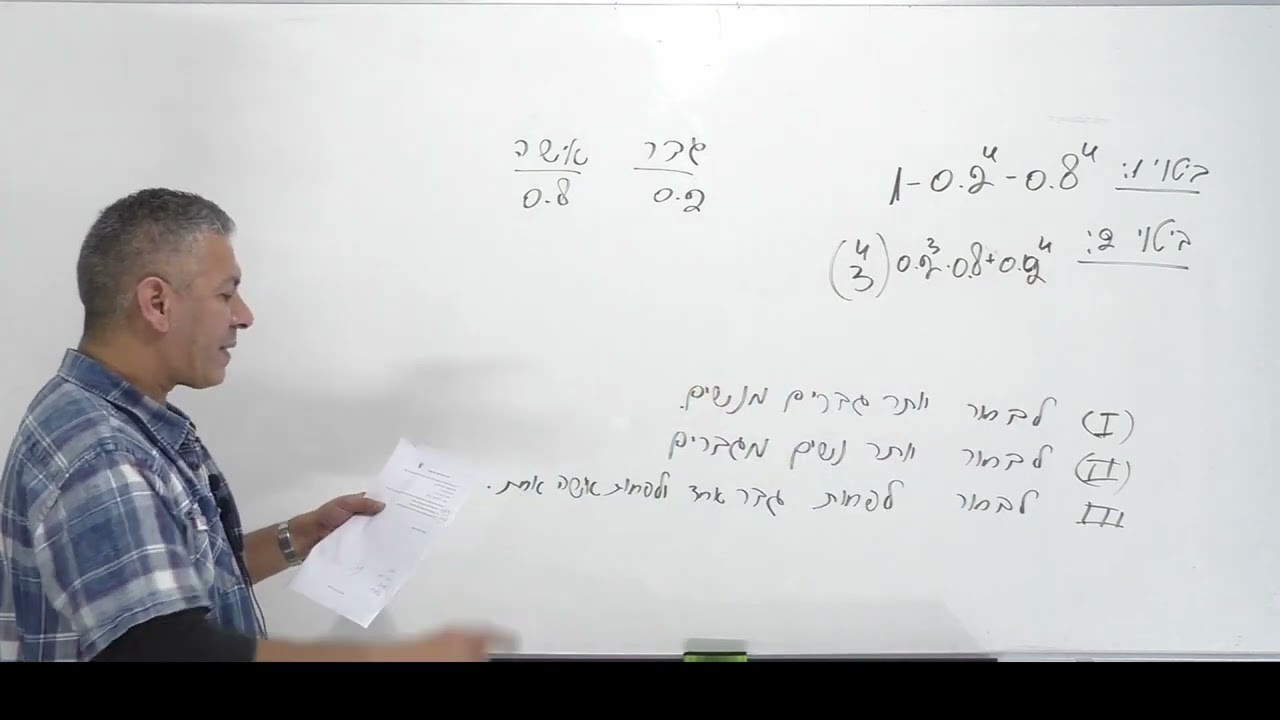 ביטוי 1: 1-0.2⁴-0.8⁴
ביטוי 2: (4 3)0.2³·0.8+0.2⁴
גבר אישה
0.2 0.8
(I) לבחור יותר גברים מנשים.
(II) לבחור יותר נשים מגברים
III לבחור לפחות גבר אחד ולפחות אישה אחת.